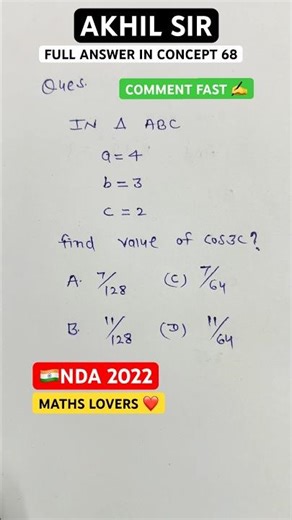 AKHIL SIR
FULL ANSWER IN CONCEPT 68
Ques.
COMMENT FAST ✍️
IN Δ ABC
a = 4
b = 3
c = 2
find value of cos3C?
A. 7/128 (C) 7/64
B. 11/128 (D) 11/64
🇮🇳NDA 2022
MATHS LOVERS ❤️